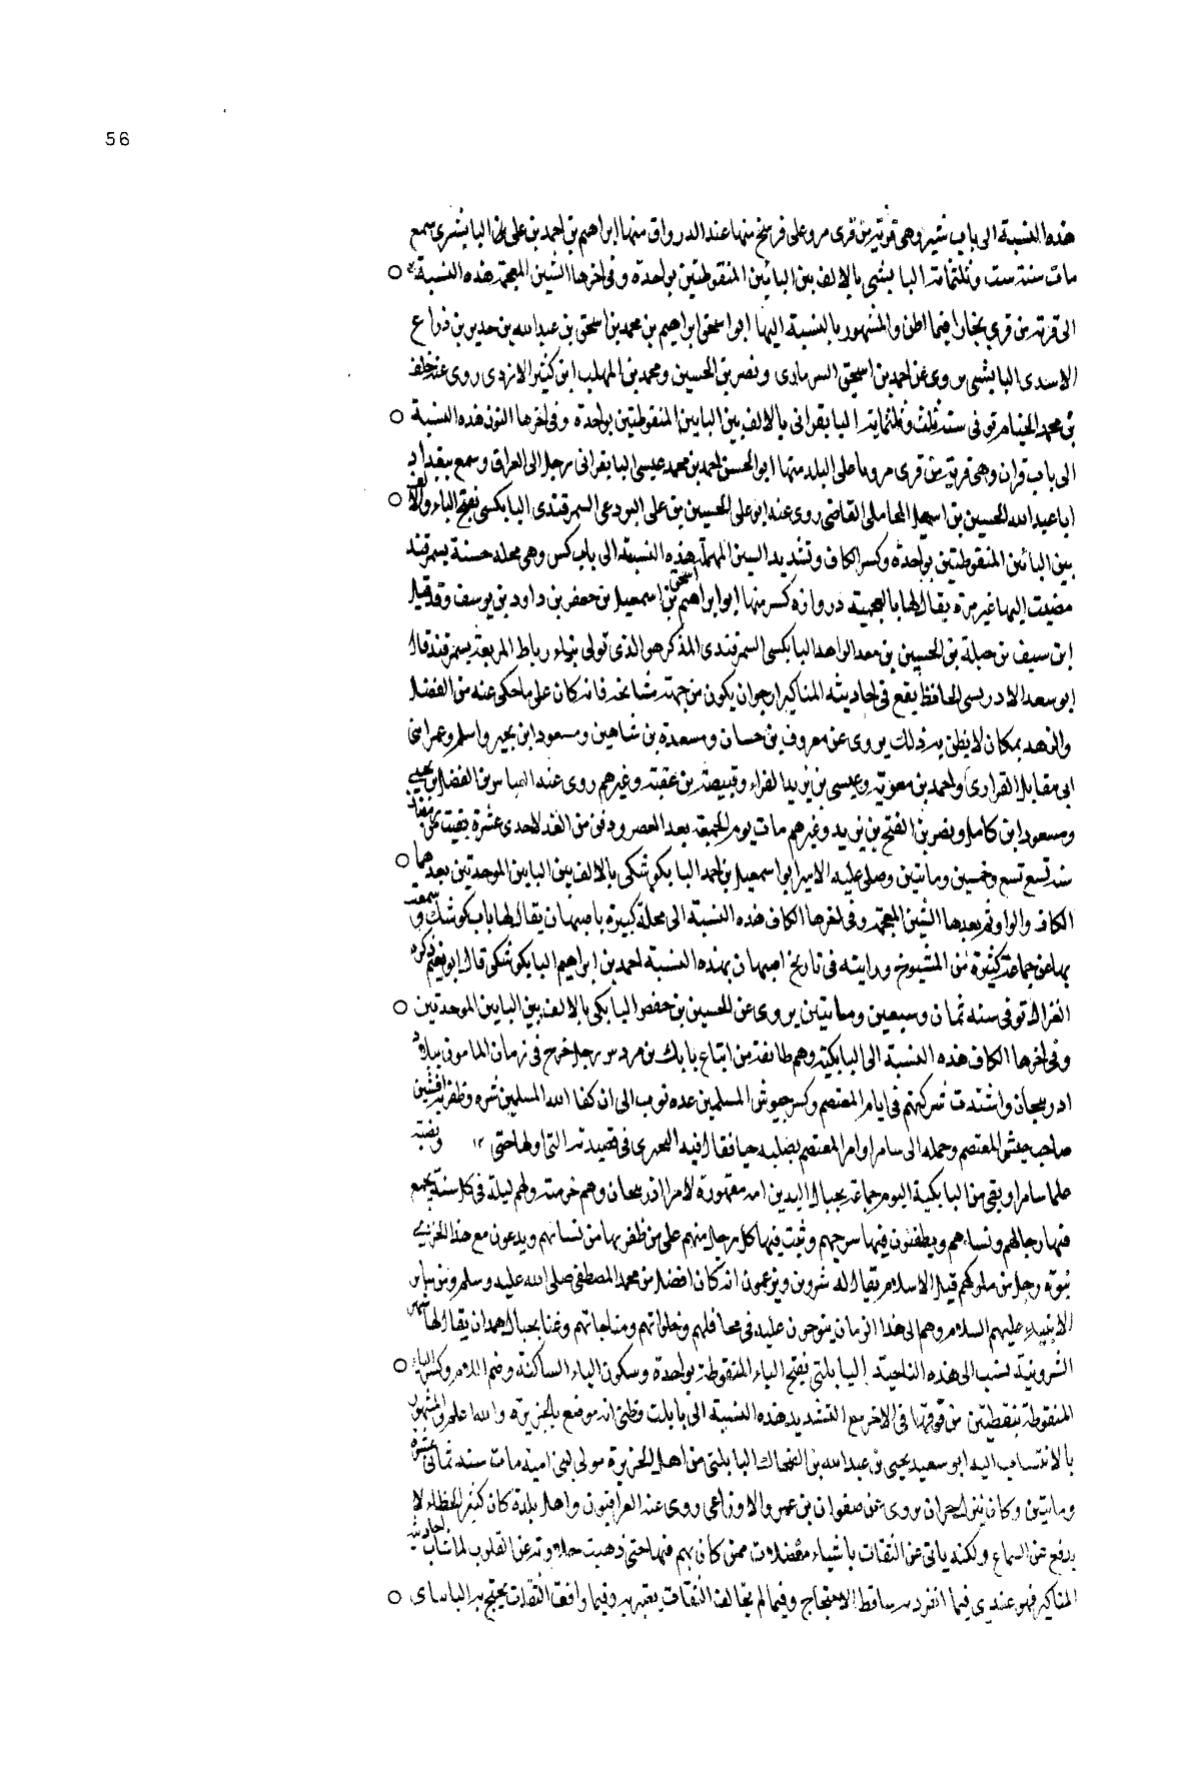 56
هذه النسبة الى باب شير وهى قرية من قرى مرو على فرسخ منها عند الدرواق منها ابراهيم بن احمد بن على البابشيرى سمع
مات سنة ست وثلثمائة البابشى بالالف بين البائين المنقوطتين بواحدة وفى اخرها الشين المعجمة هذه النسبة
الى قرية من قرى بخارا فيما اظن والمشهور بالنسبة اليها ابو اسحق ابراهيم بن محمد بن اسحق بن عبد الله بن حديد بن ذراع
الاسدى البابشى يروى عن احمد بن اسحق السرمارى ونصر بن الحسين ومحمد بن المهلب ابن كثير الازدى روى عنه خلف
بن محمد الخيام توفى سنة ثلث وثلثماية البابقرانى بالالف بين البايين المنقوطتين بواحدة وفى اخرها النون هذه النسبة
الى باب قران وهى قرية من قرى مرو باعلى البلد منها ابو الحسن احمد بن محمد عيسى البابقرانى رحل الى العراق وسمع ببغداد
ابا عبد الله الحسين بن اسمعيل المحاملى القاضى روى عنه ابو على الحسين بن على البردعى السمرقندى البابكسى بفتح الباء والالف
بين البائين المنقوطتين بواحدة وكسر الكاف وتشديد السين المهملة هذه النسبة الى باب كس وهى محلة حسنة بسمرقند
مضيت اليها غير مرة يقال لها بالعجمية دروازه كس منها ابو ابراهيم اسحق بن اسمعيل بن جعفر بن داود بن يوسف وقد قيل
ابن سيف بن جبلة بن الحسين بن معد الواهد البابكسى السمرقندى المذكر هو الذى تولى بناء رباط المربعة بسمرقند قال
ابو سعد الادريسى الحافظ يقع فى احاديثه المناكير ارجو ان يكون من جهة مشايخه فانه كان على ما حكى عنه من الفضل
والزهد بمكان لا يظن به ذلك يروى عن معروف بن حسان ومسعدة بن شاهين ومسعود ابن بحير واسلم وعمر ابنى
ابى مقاتل القرارى واحمد بن معوية وعيسى بن يزيد الفراء وقبيصة بن عقبة وغيرهم روى عنه العباس بن الفضل بن يحيى
ومسعود ابن كامل ونصر بن الفتح بن يزيد وغيرهم مات يوم الجمعة بعد العصر ودفن من الغد لاحدى عشرة بقيت من
سنة تسع تسع وخمسين وماتين وصلى عليه الامير ابو اسمعيل بن احمد البابكوشكى بالالف بين البايين الموحدتين بعدهما
الكاف والواو ثم بعدها الشين المعجمة وفى اخرها الكاف هذه النسبة الى محلة كبيرة باصبهان يقال لها باب كوشك سمعت
بها عن جماعة كثيرة من الشيوخ ورايته فى تاريخ اصبهان بهذه النسبة احمد بن ابراهيم البابكوشكى قال ابو نعيم ذكره
الغزال توفى سنه ثمان وسبعين ومايتين يروى عن الحسين بن حفص البابكى بالالف بين البايين الموحدتين
وفى اخرها الكاف هذه النسبة الى البابكية وهم طائفة من اتباع بابك بن مردس رجل خرج فى زمان المامون ببلاد
ادربيجان واشتدت شوكتهم فى ايام المعتصم وكسر جيوش المسلمين عده نوب الى ان كفا الله المسلمين شره وظفر به افشين
صاحب جيش المعتصم وحمله الى سامرا وامر المعتصم بصلبه حيا فقال فيه البحترى فى قصيدته التى اولها حتى ١٢ ونصبته
علما سامرا وبقى من البابكية اليوم جماعة بجبال البدين امد مقهورة لامرا اذربيجان وهم خرمية ولهم ليلة فى كل سنة يجمع
فيها رجالهم ونساءهم ويطفئون فيها سرجهم ويثب فيها كل رجل منهم على من ظفر بها من نسائهم ويدعون مع هذا الخزى
نبوة رجل من ملوكهم قبل الاسلام يقال له شروين ويزعمون انه كان افضل من محمد المصطفى صلى الله عليه وسلم ومن ساير
الانبياء عليهم السلام وهم الى هذا الزمان ينوحون عليه فى محافلهم وخلواتهم ومناجاتهم وغنا بجبال همدان يقال لها شهر
الشروينية تنسب الى هذه الناحية البابلتى بفتح الباء المنقوطة بواحدة وسكون الباء الساكنة وضم اللام وكسر التاء
المنقوطة بنقطتين من فوقها فى الاخر مع التشديد هذه النسبة الى بابلت وظنى انه موضع بالجزيرة والله اعلم والمشهور
بالانتساب اليه ابو سعيد يحيى بن عبد الله بن الضحاك البابلتى من اهل الجزيرة مولى لبنى امية مات سنة ثمانى عشرة
وماتين وكان ينزل حران يروى عن صفوان بن عمرو والاوزاعى روى عنه العراقيون واهل بلدة كان كثير الخطاء لا
يدفع عن السماع ولكنه ياتى عن الثقات باشياء معضلات ممن كان يهم فيها حتى ذهبت حلاوته عن القلوب لما شاب احاديثه
المناكير فهو عندى فيما انفرد به ساقط الاحتجاج وفيما لم يخالف الثقات يعتبر به وفيما وافق الثقات يحتج به الباساى